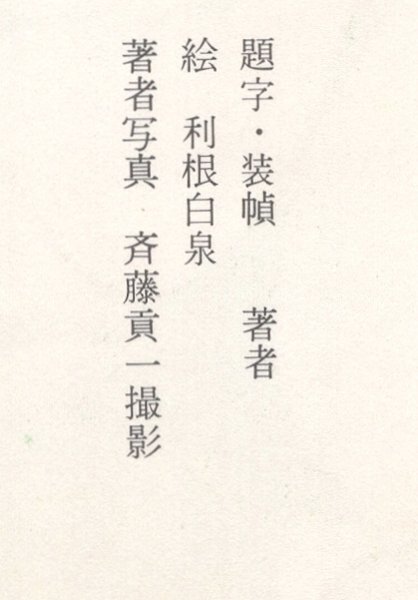 題字・装幀　著者
絵　利根白泉
著者写真　斉藤貢一撮影